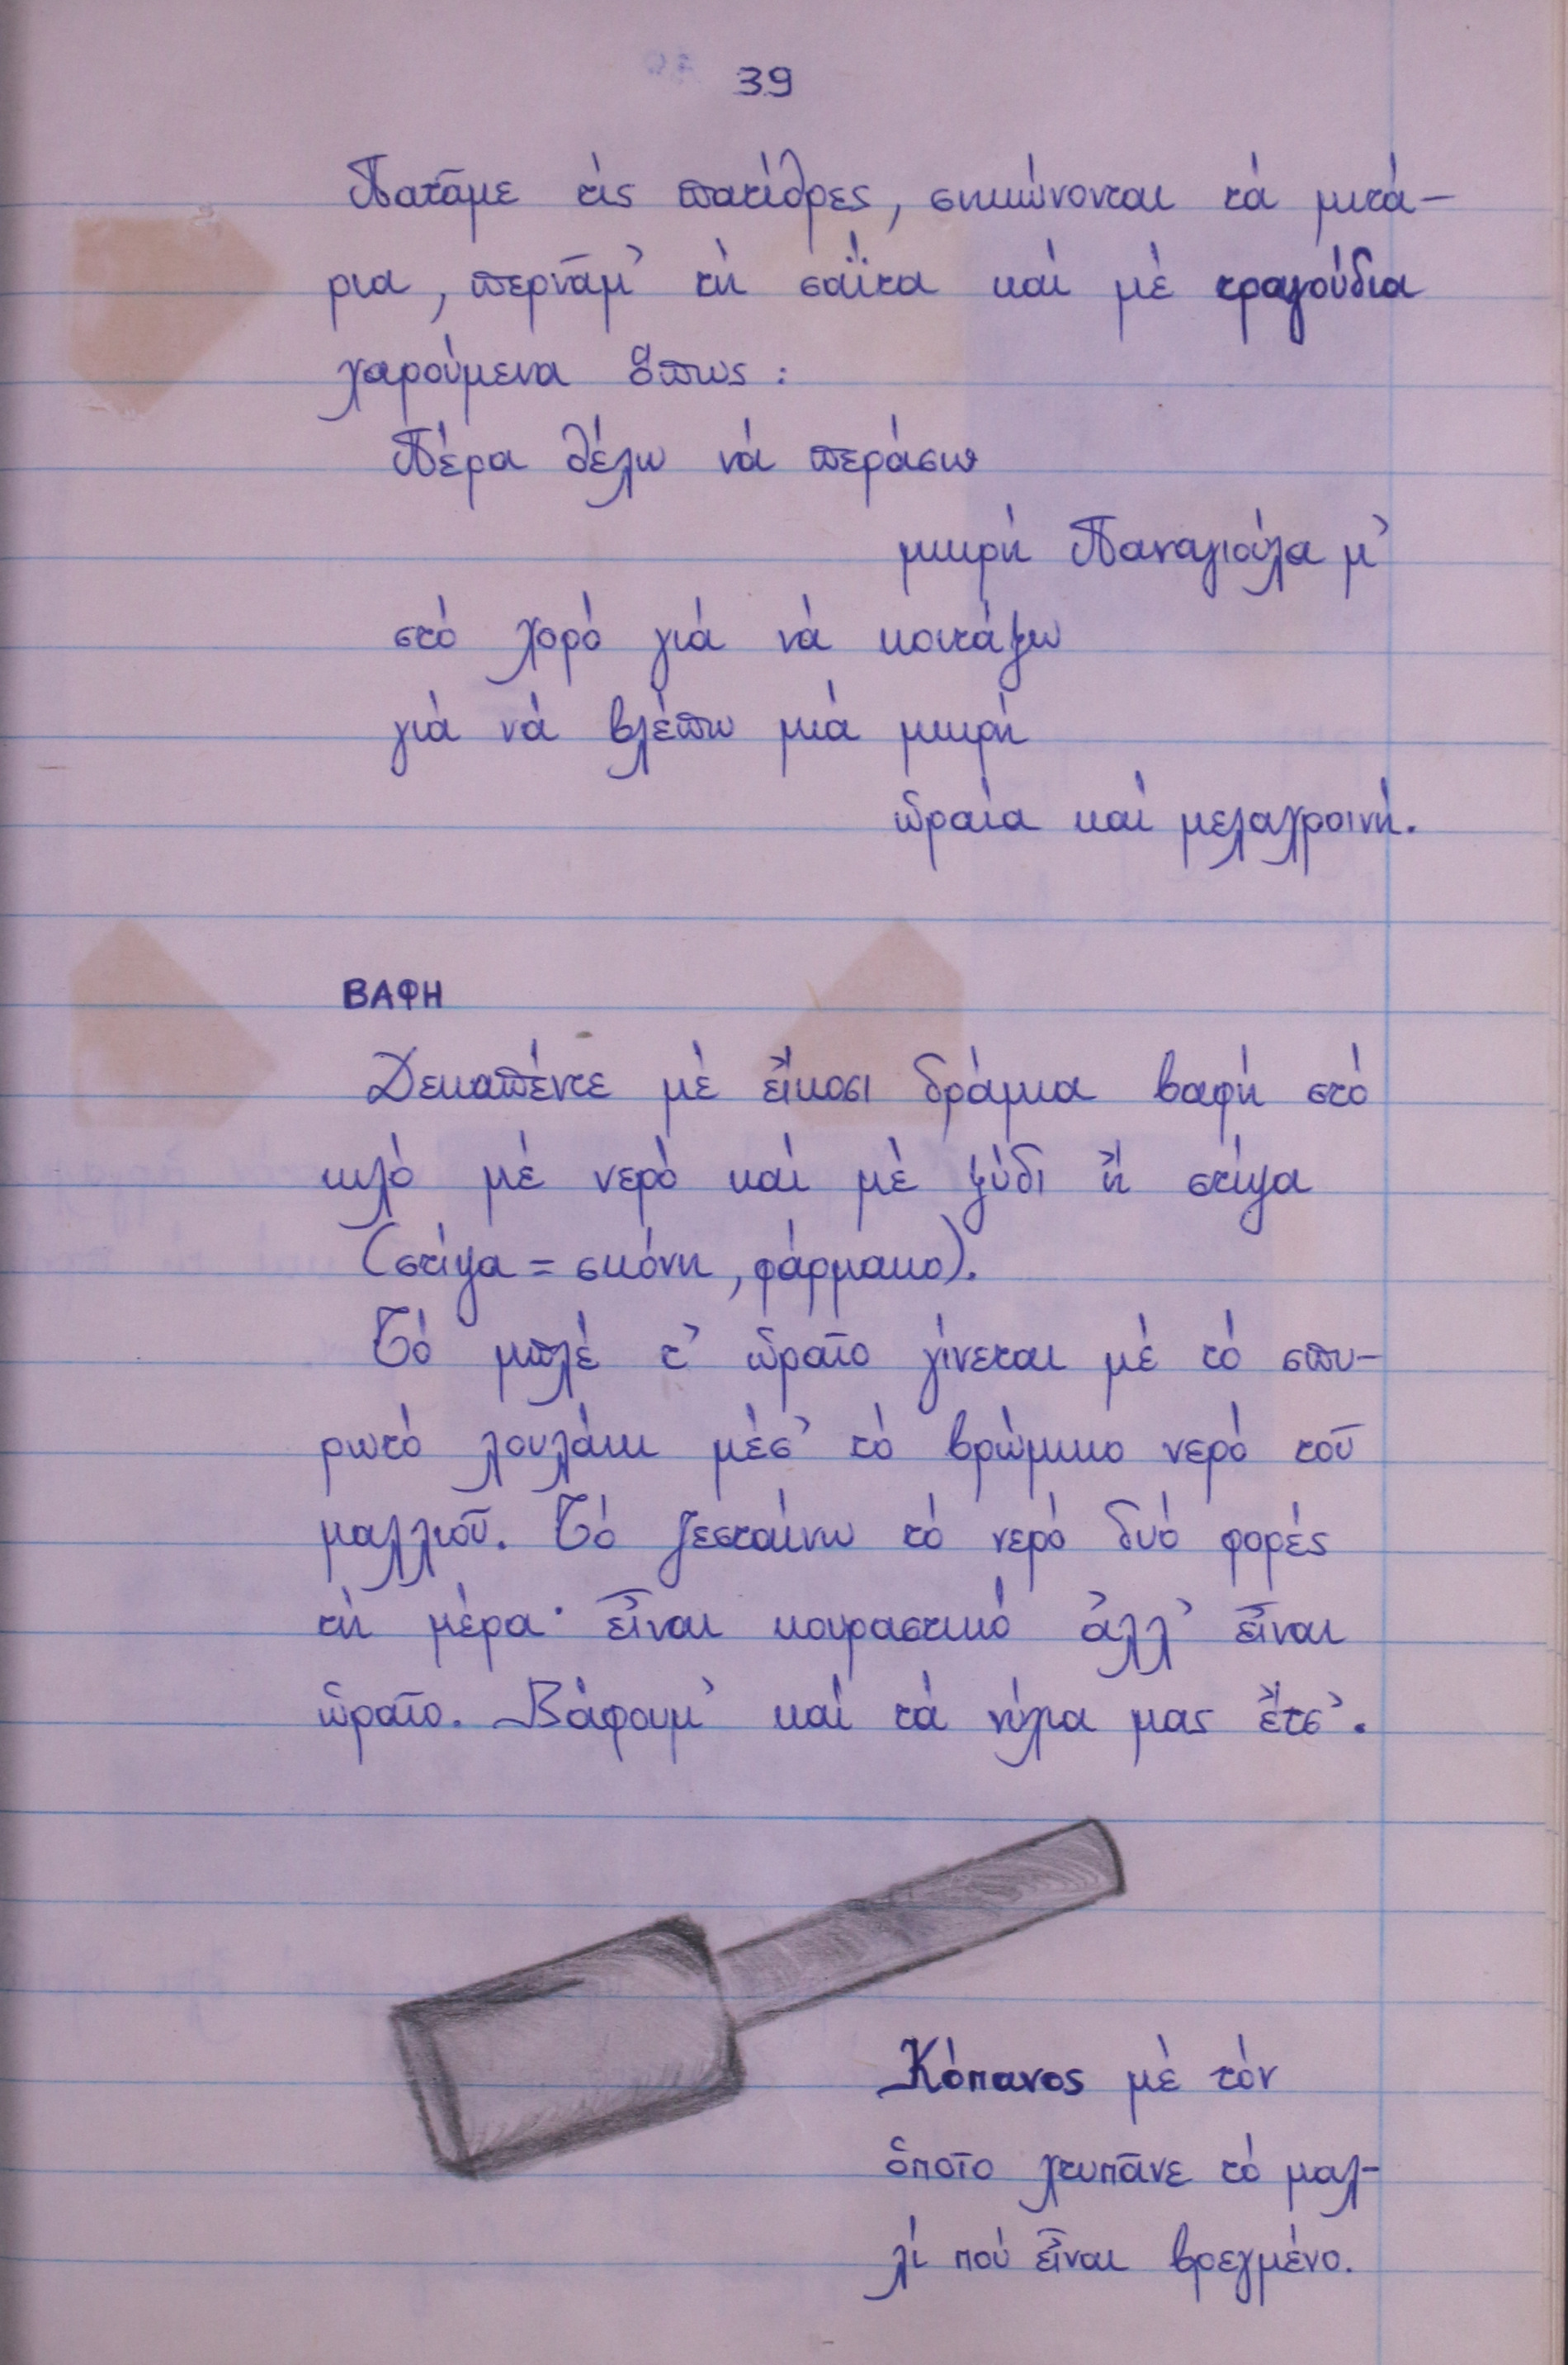 39
Πατᾶμε τίς πατίθρες, σηκώνονται τά μιτά-
ρια, περνᾶμ' τή σαΐτα καί μέ τραγούδια
χαρούμενα ὅπως:
Πέρα θέλω νά περάσω
μικρή Παναγιούλα μ'
στό χορό γιά νά κοιτάξω
γιά νά βλέπω μιά μικρή
ὡραία καί μελαχροινή.
ΒΑΦΗ
Δεκαπέντε μέ εἴκοσι δράμια βαφή στό
κιλό μέ νερό καί μέ ξύδι ἤ στίψα
(στίψα = σκόνη, φάρμακο).
Τό μπλέ τ' ὡραῖο γίνεται μέ τό σπυ-
ρωτό λουλάκι μέσ' τό βρώμικο νερό τοῦ
μαλλιοῦ. Τό ζεσταίνω τό νερό δυό φορές
τή μέρα· εἶναι κουραστικό ἀλλ' εἶναι
ὡραῖο. Βάφουμ' καί τά νήμα μας ἔτσ'.
Κόπανος μέ τόν
ὁποῖο χτυπᾶνε τό μαλ-
λί πού εἶναι βρεγμένο.